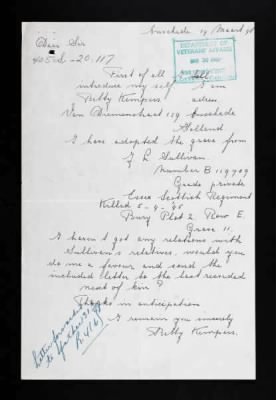 Enschede 19 Maart 48
DEPARTMENT OF
VETERANS AFFAIRS
Dear Sir
405-S-20.117
First of all I shall
introduce my self. I am
Betty Kempers. adres
Van Diemenstraat 129 Enschede
Holland
I have adopted the grave from
J L Sullivan.
Number B 119909
Grade private
Essex Scottish Regiment
Killed 5-4-'45
Bury Plot 2. Row E.
Grave 11.
I haven't got any relations with
Sullivan's relatives. would you
do me a favour and send the
included letter to the last recorded
next of kin?
Thanks in anticipation
I remain yours sincerely
Betty Kempers.
letter forwarded
to